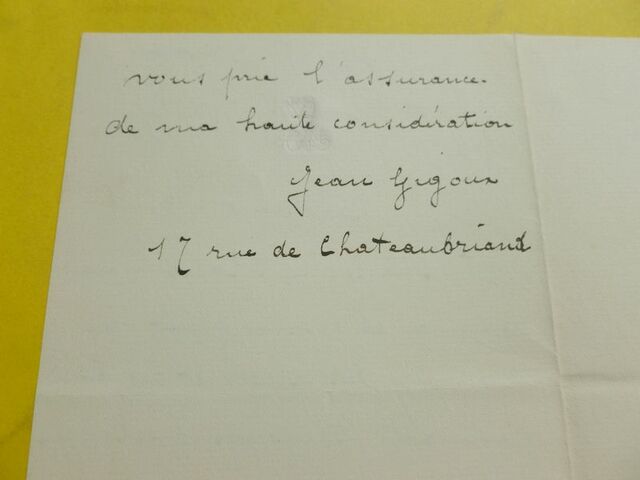 vous prie l'assurance
de ma haute considération
Jean Gigoux
17 rue de Chateaubriand